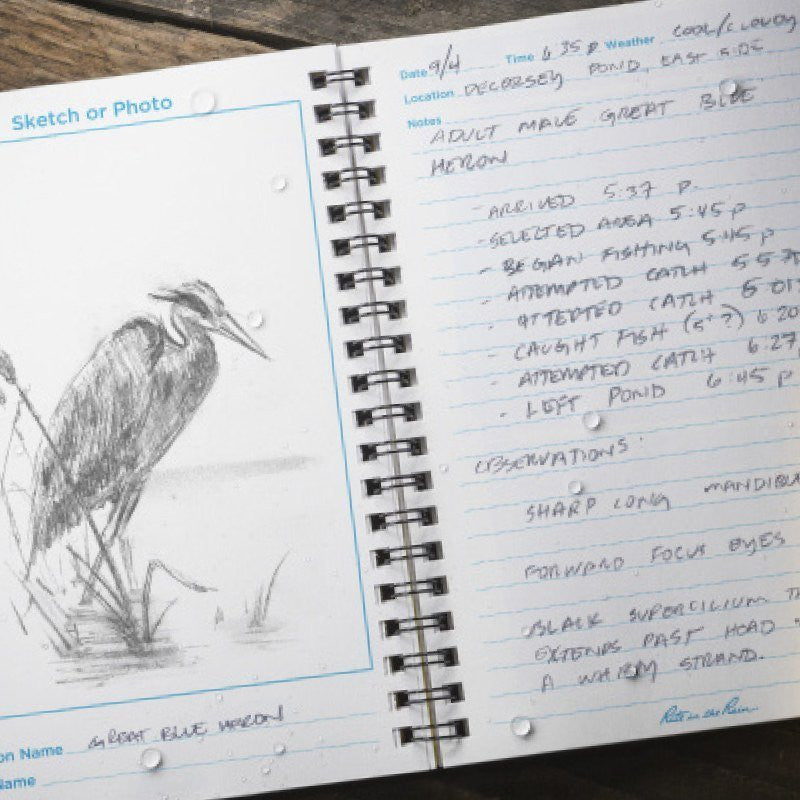 Sketch or Photo
on Name GREAT BLUE HERON
Name
Date 9/4 Time 6 35 P Weather COOL/CLOUDY
Location DECORSEY POND, EAST SIDE
Notes
ADULT MALE GREAT BLUE
HERON
- ARRIVED 5:37 P.
- SELECTED AREA 5:45 P
- BEGAN FISHING 5:45 P
- ATTEMPTED CATCH 5 57P
- ATTEPTED CATCH 6 01P
- CAUGHT FISH (5"?) 6 20
- ATTEMPTED CATCH 6:27
- LEFT POND 6:45 P
OBSERVATIONS:
SHARP LONG MANDIBL
FORWARD FOCUS EYES
BLACK SUPERCILIUM TH
EXTENDS PAST HEAD
A WHISPY STRAND.
Rite in the Rain